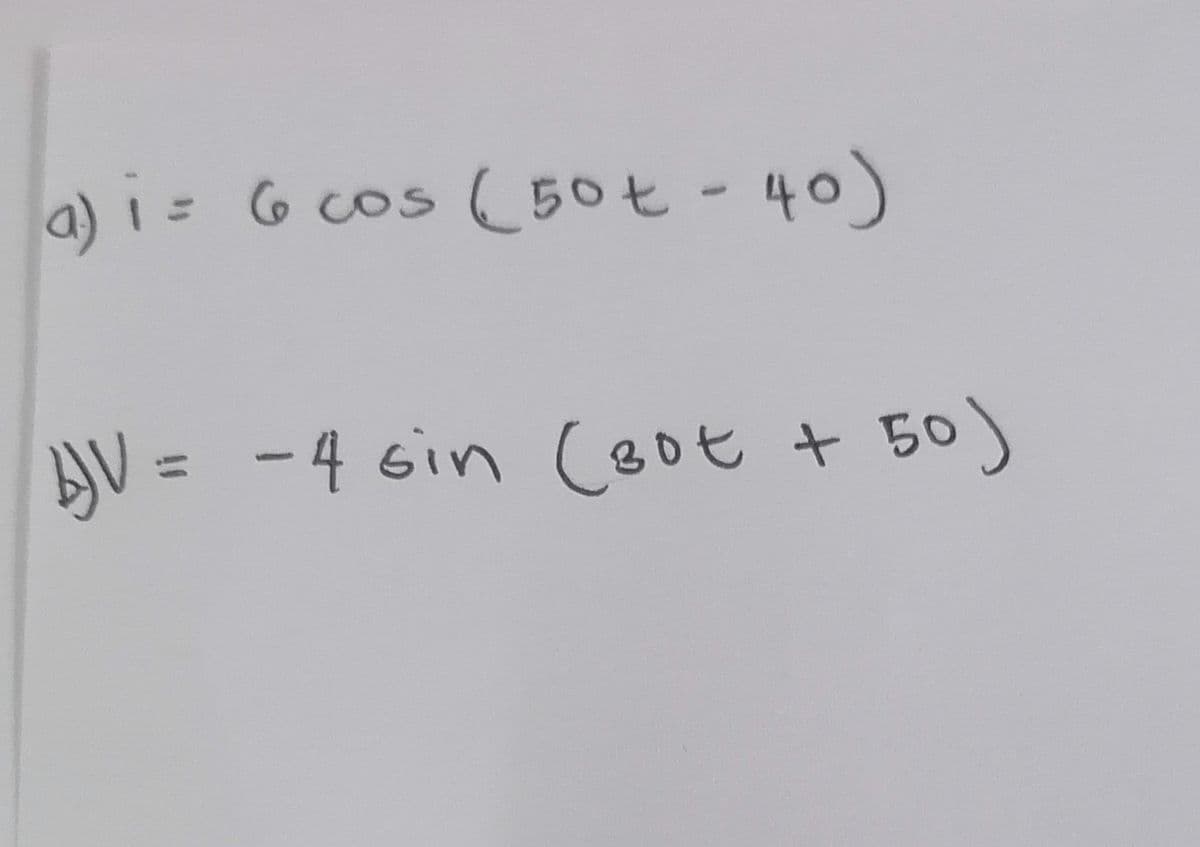 a) i = 6 cos (50t - 40)
b) V = -4 sin (30t + 50)